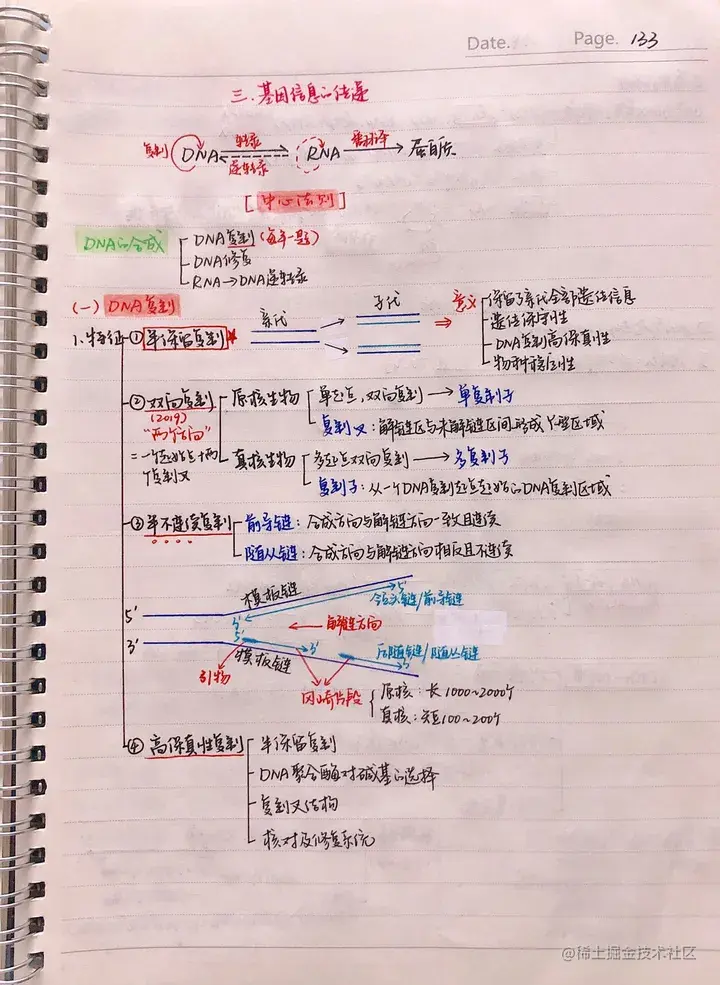 Date. Page. 133
三.基因信息的传递
复制 DNA 转录 逆转录 RNA 翻译 蛋白质
[中心法则]
DNA的合成
DNA复制(每年一题)
DNA修复
RNA→DNA逆转录
(一) DNA复制
1.特征 ①半保留复制★
亲代 子代
⇒ 意义
保留了亲代全部遗传信息
遗传保守性
DNA复制高保真性
物种稳定性
②双向复制
(2019)
"两个方向"
=一个起始点两个复制叉
原核生物
单起点,双向复制→单复制子
复制叉:解链区与未解链区间形成Y型区域
真核生物
多起点双向复制→多复制子
复制子:从一个DNA复制起点起始的DNA复制区域
③半不连续复制
前导链:合成方向与解链方向一致且连续
随从链:合成方向与解链方向相反且不连续
模板链 5'
领头链/前导链
5' 3'
解链方向
3' 5' 3'
后随链/随从链
模板链 3'
引物
冈崎片段
原核:长1000~2000个
真核:短100~200个
④高保真性复制
半保留复制
DNA聚合酶对碱基的选择
复制叉结构
核对及修复系统
@稀土掘金技术社区